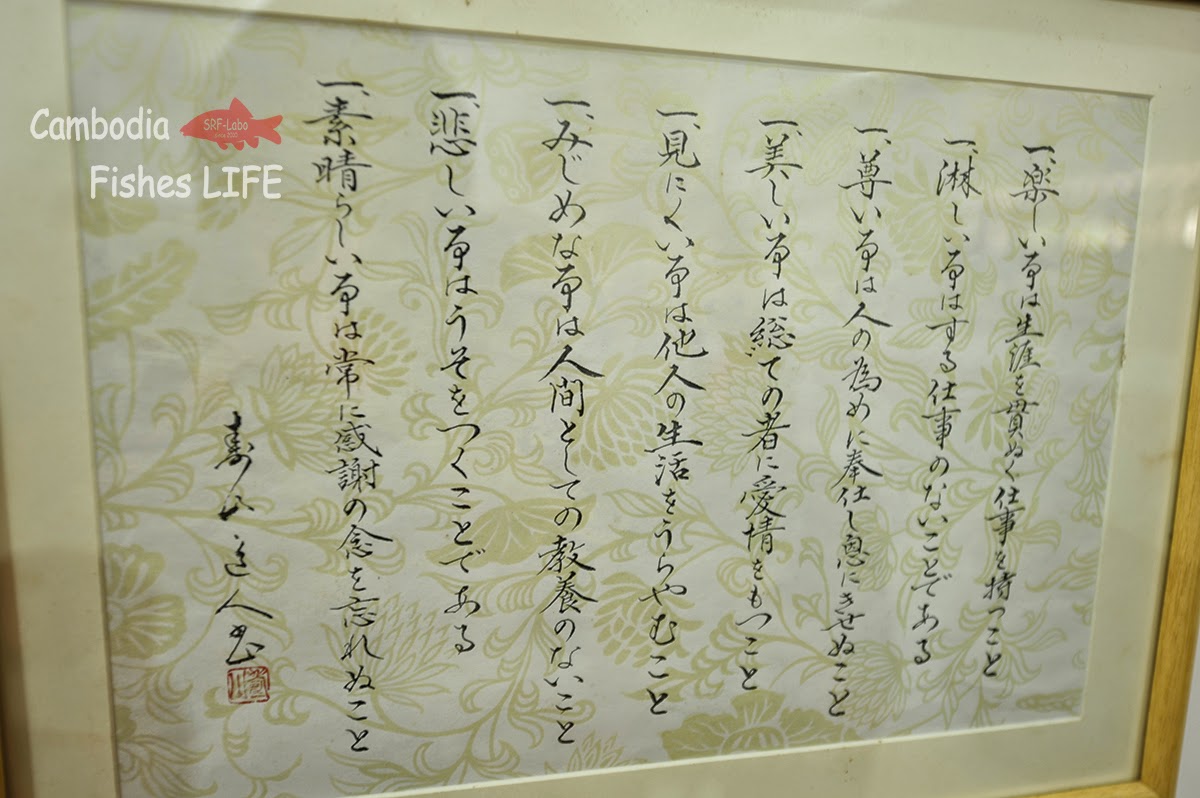 一、楽しい事は生涯を貫ぬく仕事を持つこと
一、淋しい事はする仕事のないことである
一、尊い事は人の為めに奉仕し恩にきせぬこと
一、美しい事は総ての者に愛情をもつこと
一、見にくい事は他人の生活をうらやむこと
一、みじめな事は人間としての教養のないこと
一、悲しい事はうそをつくことである
一、素晴らしい事は常に感謝の念を忘れぬこと
人書
Cambodia
SRF-Labo
Fishes LIFE